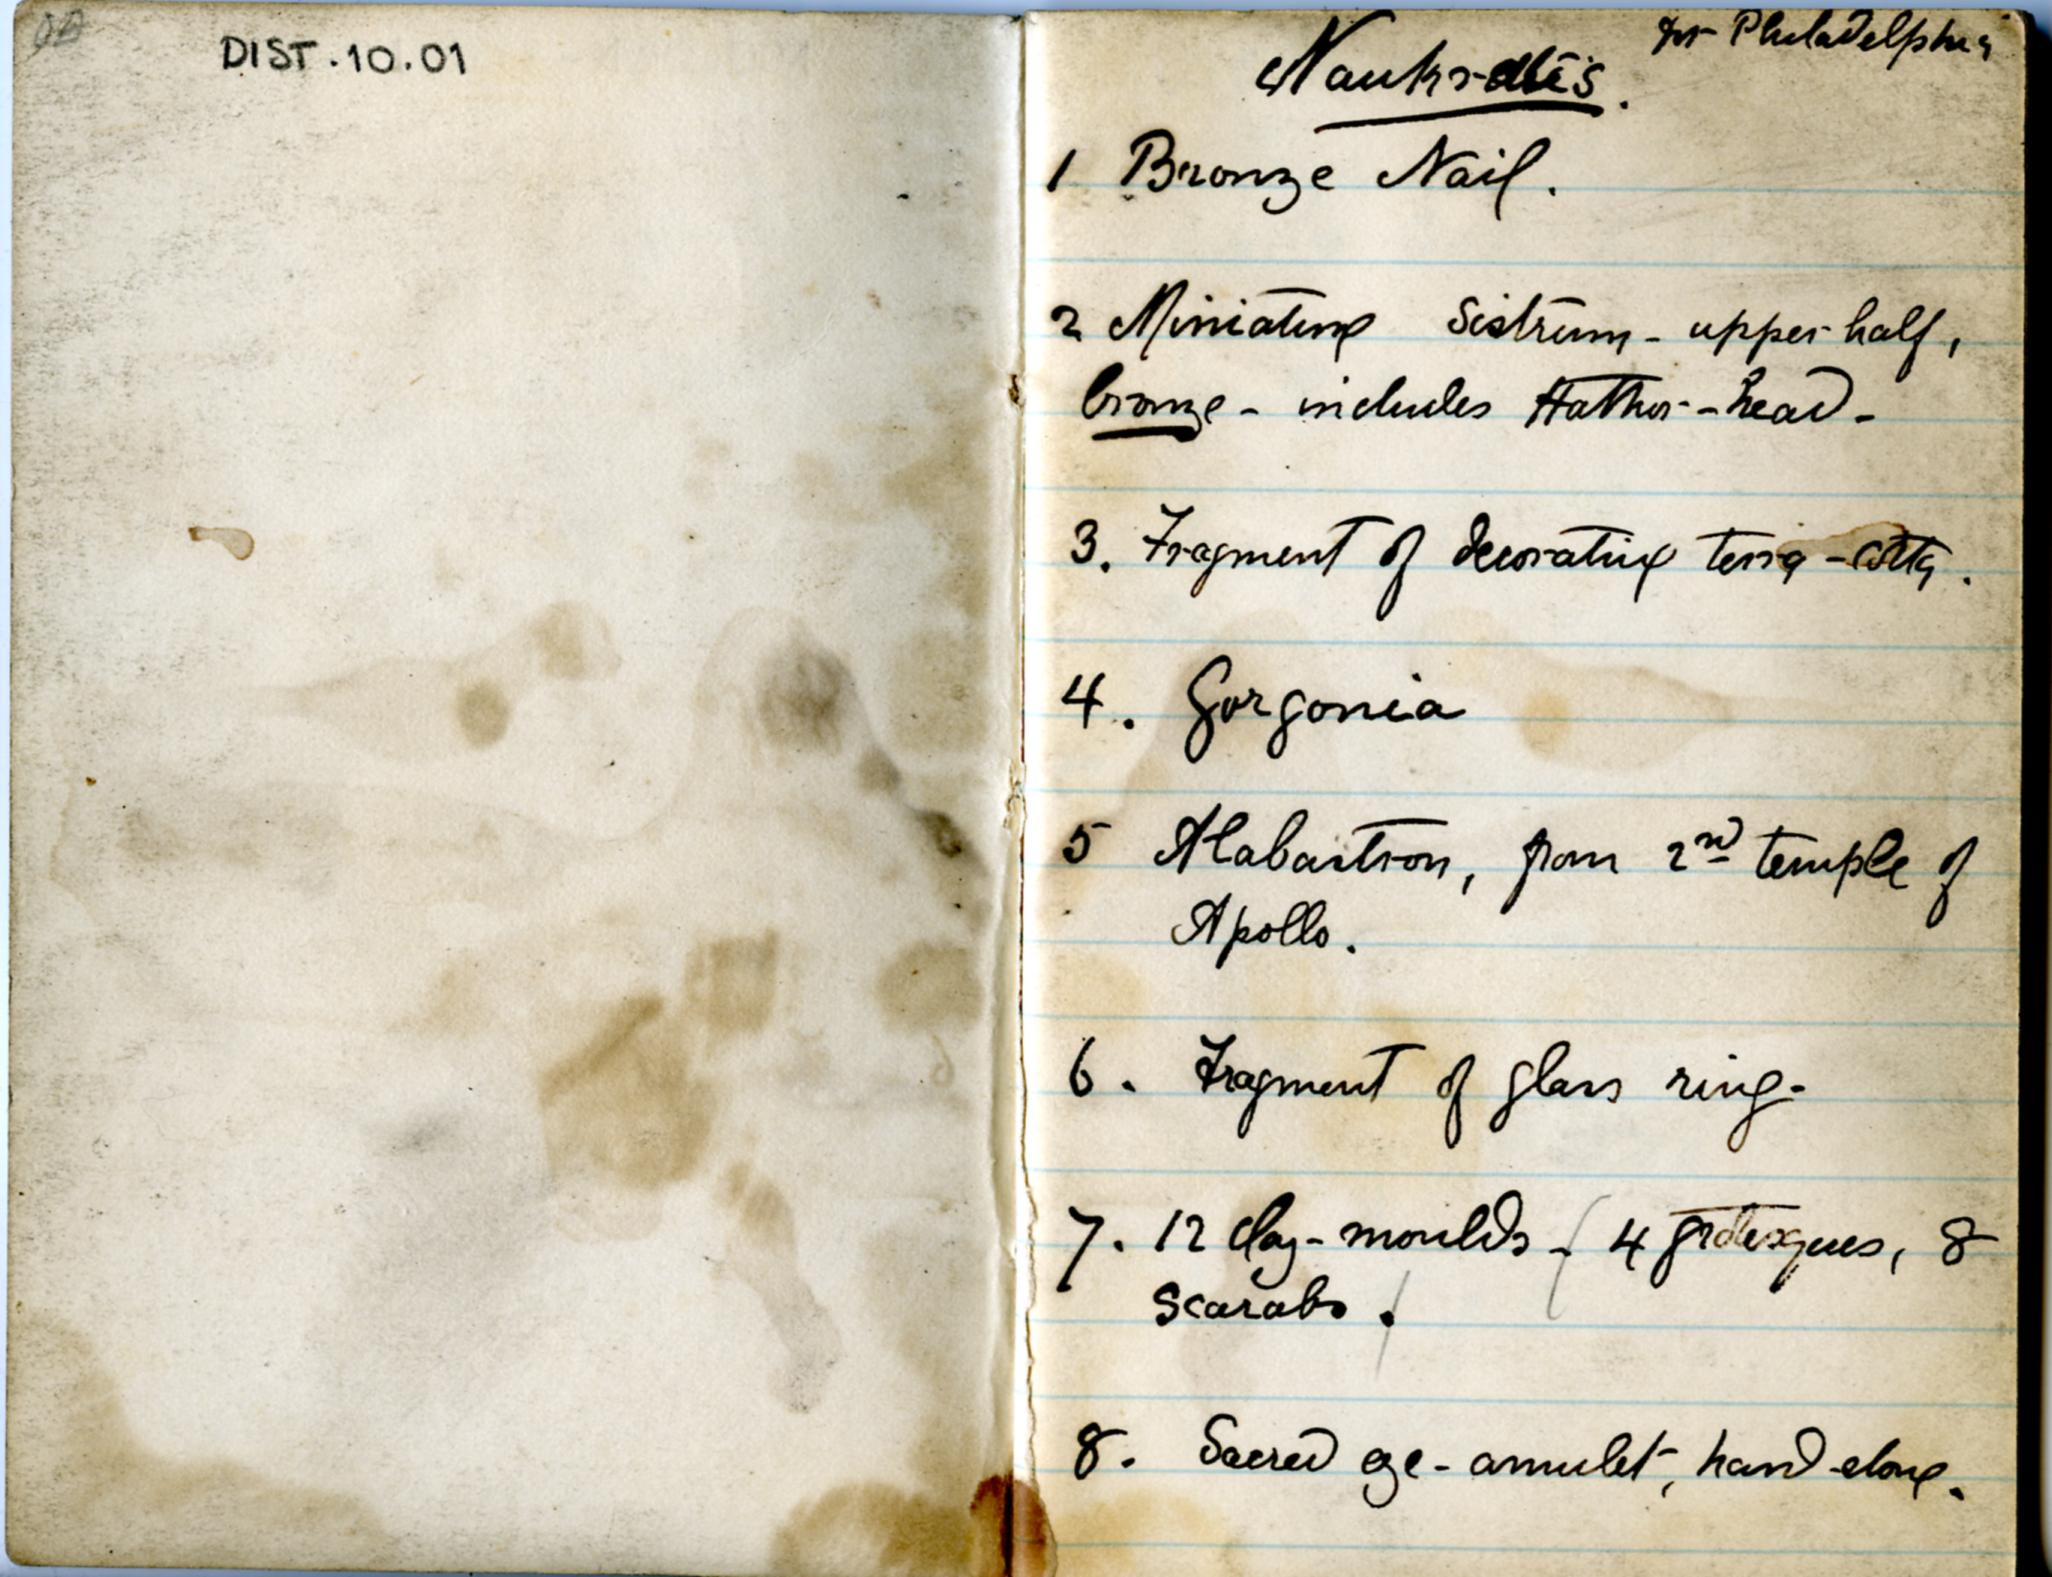 DIST.10.01
for Philadelphia
Naukratis.
1 Bronze Nail.
2 Miniature Sistrum - upper half,
bronze - includes Hathor-head -
3. Fragment of decorative terra-cotta.
4. Gorgonia
5 Alabastron, from 2nd temple of
Apollo.
6. Fragment of glass ring.
7. 12 clay-moulds - ( 4 grotesques, 8
scarabs. )
8. Sacred eye-amulet, hard